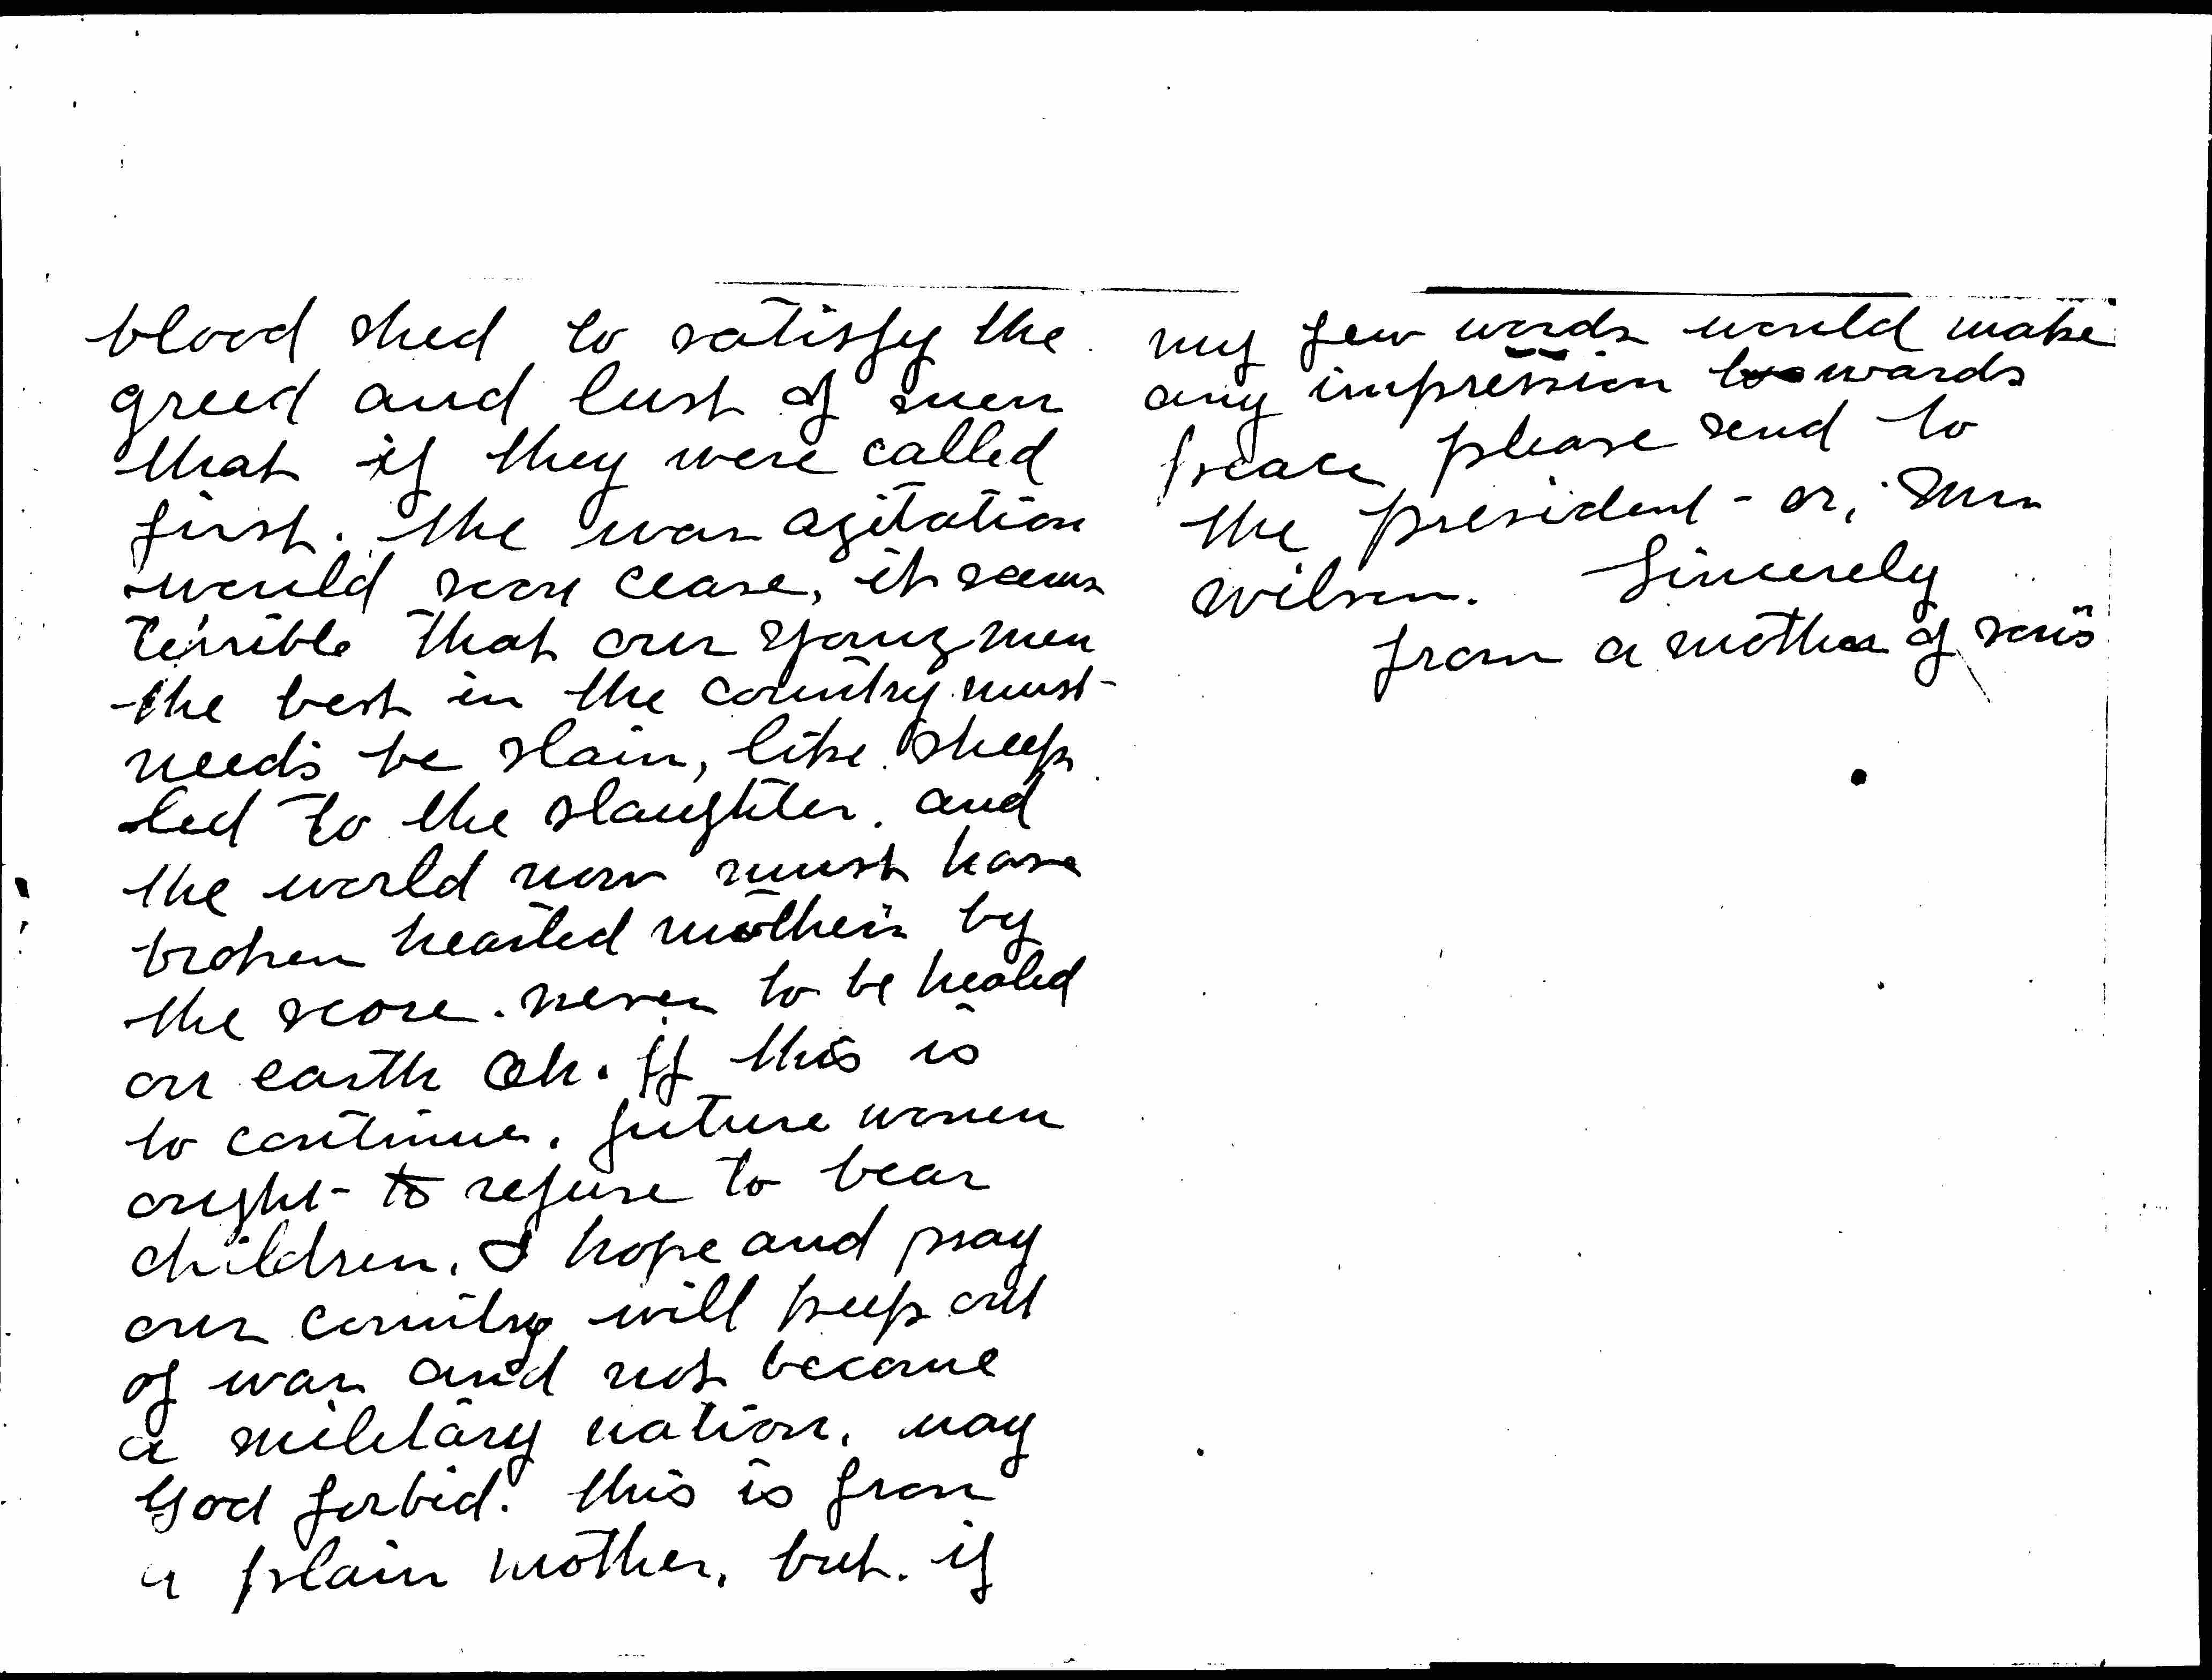 blood shed to satisfy the
greed and lust of men
that if they were called
first. the war agitation
would soon cease, it seems
terrible that our young men
the best in the country must
needs be slain, like sheep
led to the slaughter. and
the world now must have
broken hearted mothers by
the score. never to be healed
on earth Oh. if this is
to continue. future women
ought to refuse to bear
children. I hope and pray
our country will keep out
of war and not become
a military nation. may
God forbid. this is from
a plain mother. but. if
my few words would make
any impression towards
peace please send to
the president - or, Mrs
Wilson. Sincerely
from a mother of sons